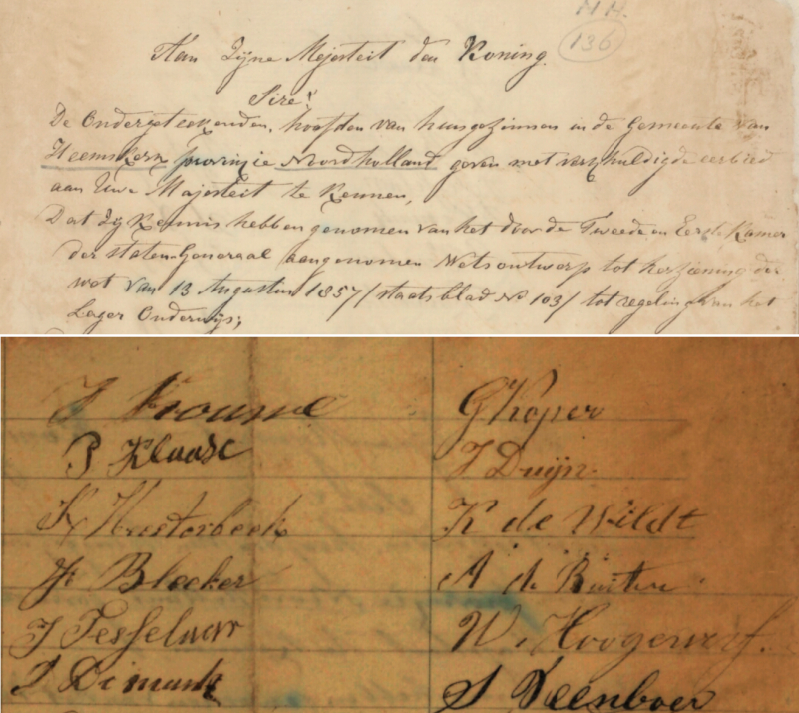 136
Aan Zijne Majesteit den Koning.
Sire!
De Ondergeteekenden, hoofden van huisgezinnen in de Gemeente van
Heemskerk provinzie Noordholland geven met verschuldigde eerbied
aan Uwe Majesteit te Kennen,
Dat Zij Kennis hebben genomen van het door de Tweede en Eerste Kamer
der staten-Generaal aangenomen Wetsontwerp tot herziening der
wet van 13 Augustus 1857 (staatsblad No 103) tot regeling van het
Lager Onderwijs;
P Klaase
Bleeker
J Tesselaar
G Koper
J Duijn
K de Wildt
A de Ruiter
W. Hoogewerf.
S Veenboer